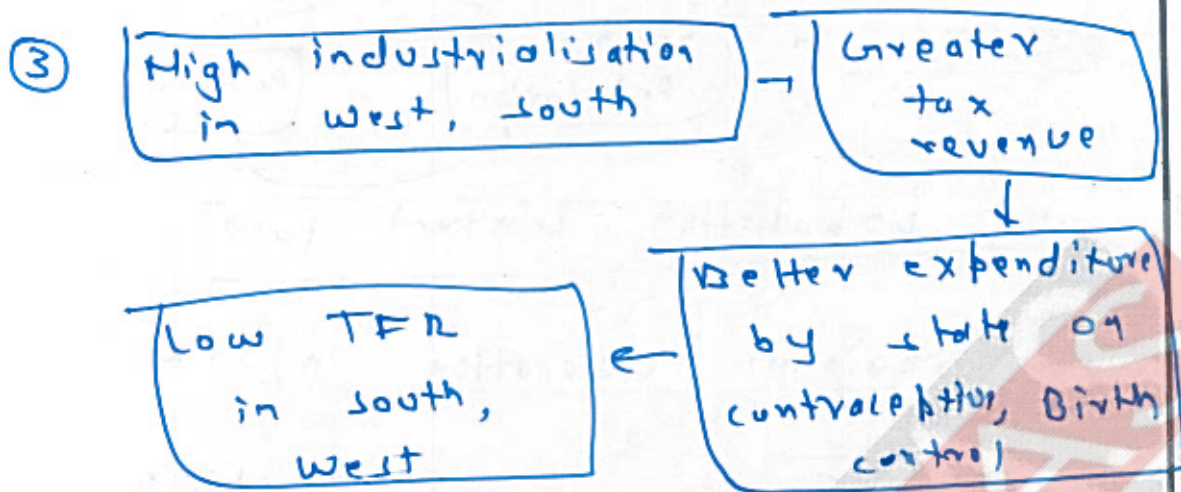 ③
High industrialisation
in west, south
Greater
tax
revenue
Better expenditure
by state on
contraceptives, Birth
control
Low TFR
in south,
west